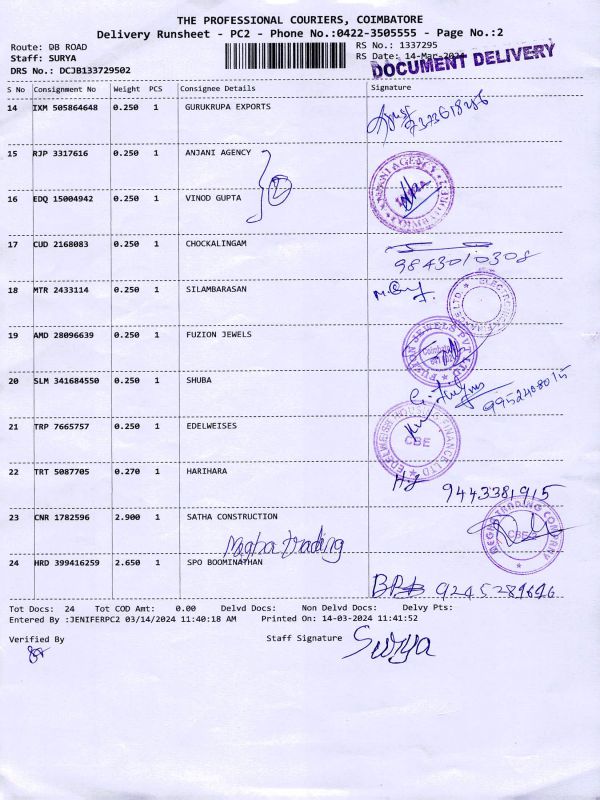 THE PROFESSIONAL COURIERS, COIMBATORE
Delivery Runsheet - PC2 - Phone No.:0422-3505555 - Page No.:2
Route: DB ROAD
RS No.: 1337295
Staff: SURYA
RS Date: 14-Mar-2024
DRS No.: DCJB133729502
DOCUMENT DELIVERY
S No Consignment No Weight PCS Consignee Details Signature
14 IXM 505864648 0.250 1 GURUKRUPA EXPORTS
15 RJP 3317616 0.250 1 ANJANI AGENCY
16 EDQ 15004942 0.250 1 VINOD GUPTA
17 CUD 2168083 0.250 1 CHOCKALINGAM
9843010308
18 MTR 2433114 0.250 1 SILAMBARASAN
19 AMD 28096639 0.250 1 FUZION JEWELS
FUZION JEWELS PVT LTD
20 SLM 341684550 0.250 1 SHUBA
9952408015
21 TRP 7665757 0.250 1 EDELWEISES
CBE
22 TRT 5087705 0.270 1 HARIHARA
9443381915
23 CNR 1782596 2.900 1 SATHA CONSTRUCTION
Megha trading
MEGHA TRADING COMPANY
CBE
24 HRD 399416259 2.650 1 SPO BOOMINATHAN
9245289646
Tot Docs: 24 Tot COD Amt: 0.00 Delvd Docs: Non Delvd Docs: Delvy Pts:
Entered By :JENIFERPC2 03/14/2024 11:40:18 AM Printed On: 14-03-2024 11:41:52
Verified By
Staff Signature Surya